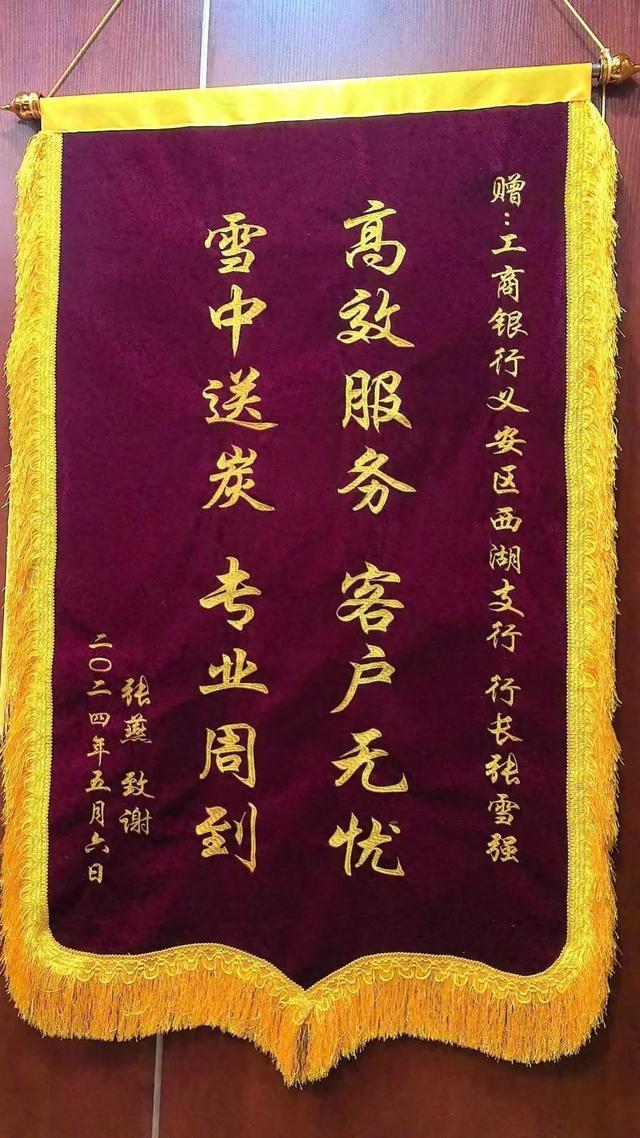 赠：工商银行义安区西湖支行 行长张雪强
高效服务 客户无忧
雪中送炭 专业周到
张燕 致谢
二〇二四年五月六日